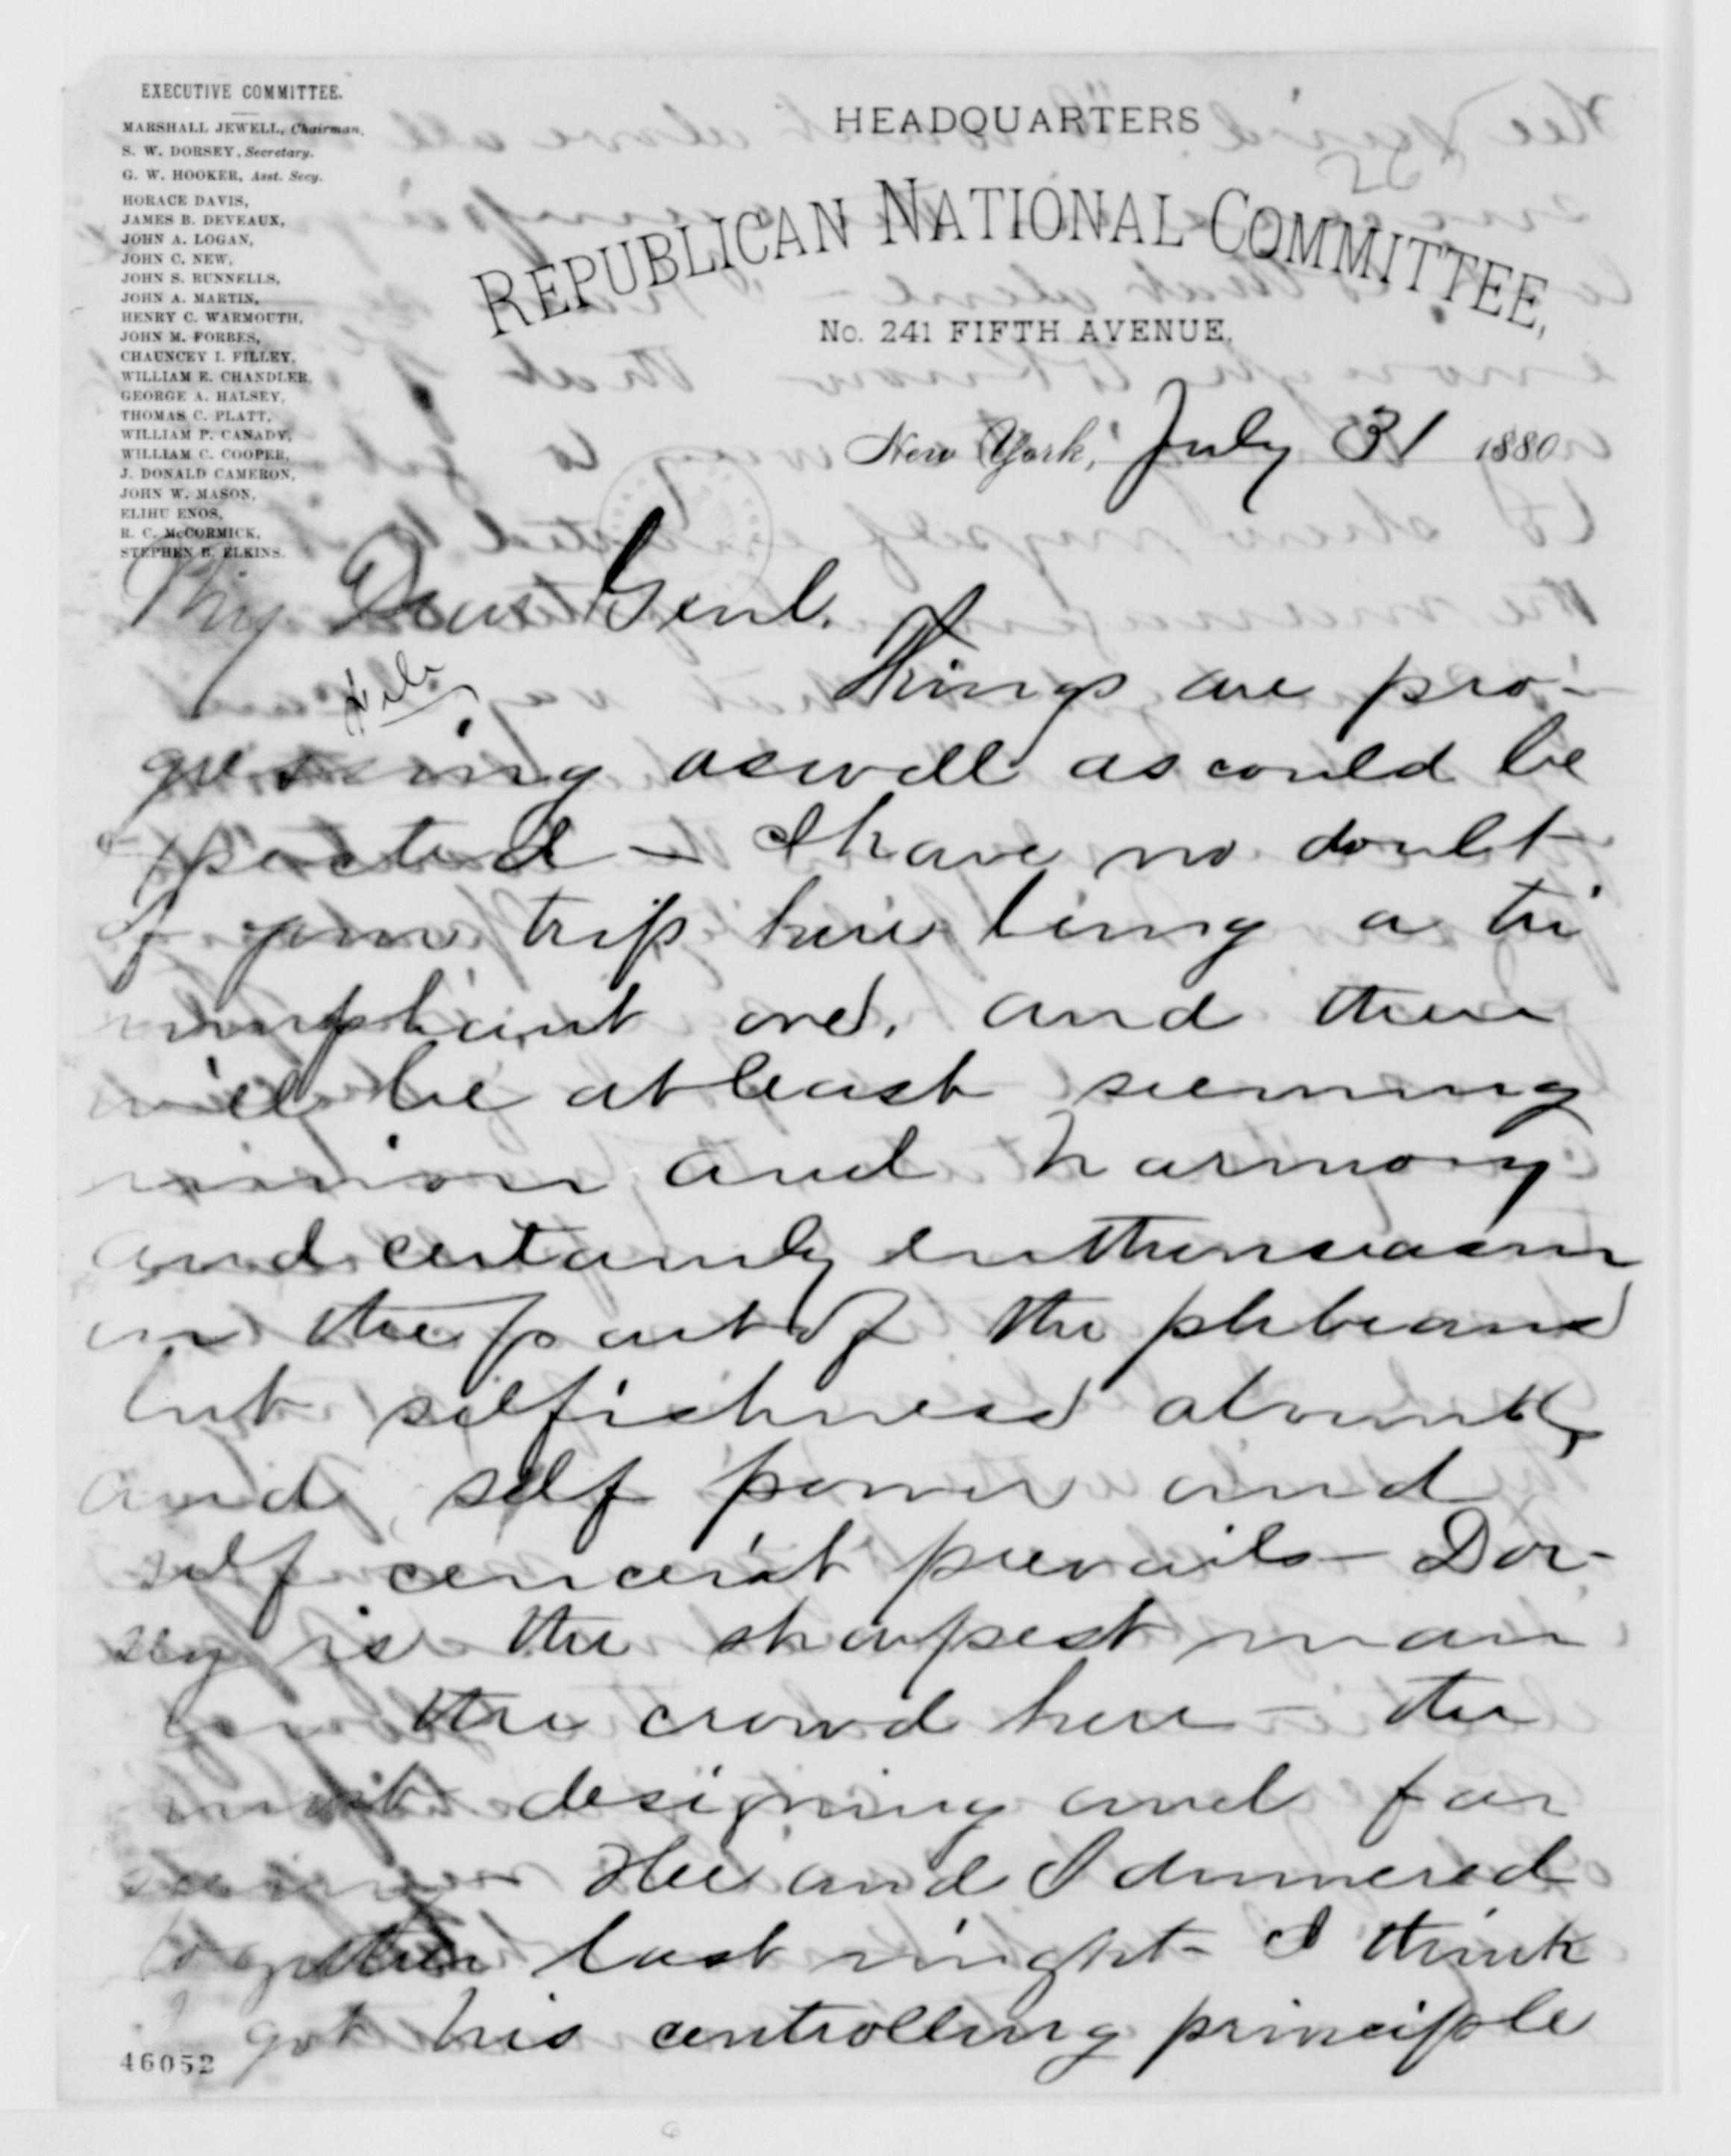 EXECUTIVE COMMITTEE.
MARSHALL JEWELL, Chairman.
S. W. DORSEY, Secretary.
G. W. HOOKER, Asst. Secy.
HORACE DAVIS,
JAMES B. DEVEAUX,
JOHN A. LOGAN,
JOHN C. NEW,
JOHN S. RUNNELLS,
JOHN A. MARTIN,
HENRY C. WARMOUTH,
JOHN M. FORBES,
CHAUNCEY I. FILLEY,
WILLIAM E. CHANDLER,
GEORGE A. HALSEY,
THOMAS C. PLATT,
WILLIAM P. CANADY,
WILLIAM C. COOPER,
J. DONALD CAMERON,
JOHN W. MASON,
ELIHU ENOS,
R. C. McCORMICK,
STEPHEN B. ELKINS.
HEADQUARTERS
REPUBLICAN NATIONAL COMMITTEE,
No. 241 FIFTH AVENUE,
New York, July 31 1880
My Dear Genl.
Things are pro-
gressing as well as could be
expected – I have no doubt
of your trip here being a tri
umphant one, and there
will be at least seeming
union and harmony
and certainly enthusiasm
on the part of the plebeans
but selfishness abounds,
and self power and
self conceit prevails – Dor-
sey is the sharpest man
in the crowd here – the
most designing and far
seeing – Hee and I dinnered
together last night – I think
I got his controlling principle
46052